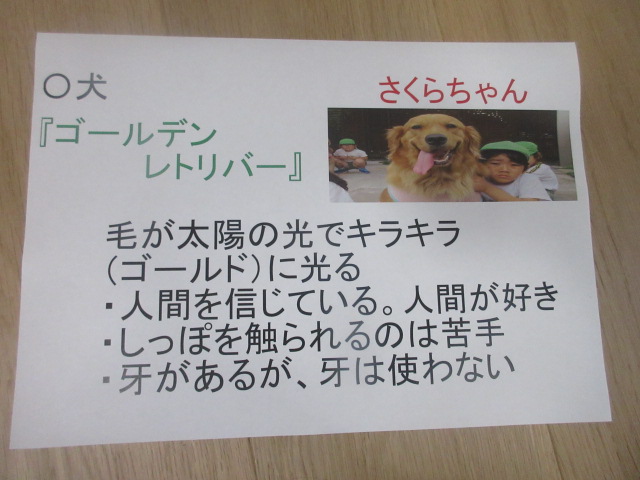 〇犬
さくらちゃん
『ゴールデン
レトリバー』
毛が太陽の光でキラキラ
(ゴールド)に光る
・人間を信じている。人間が好き
・しっぽを触られるのは苦手
・牙があるが、牙は使わない